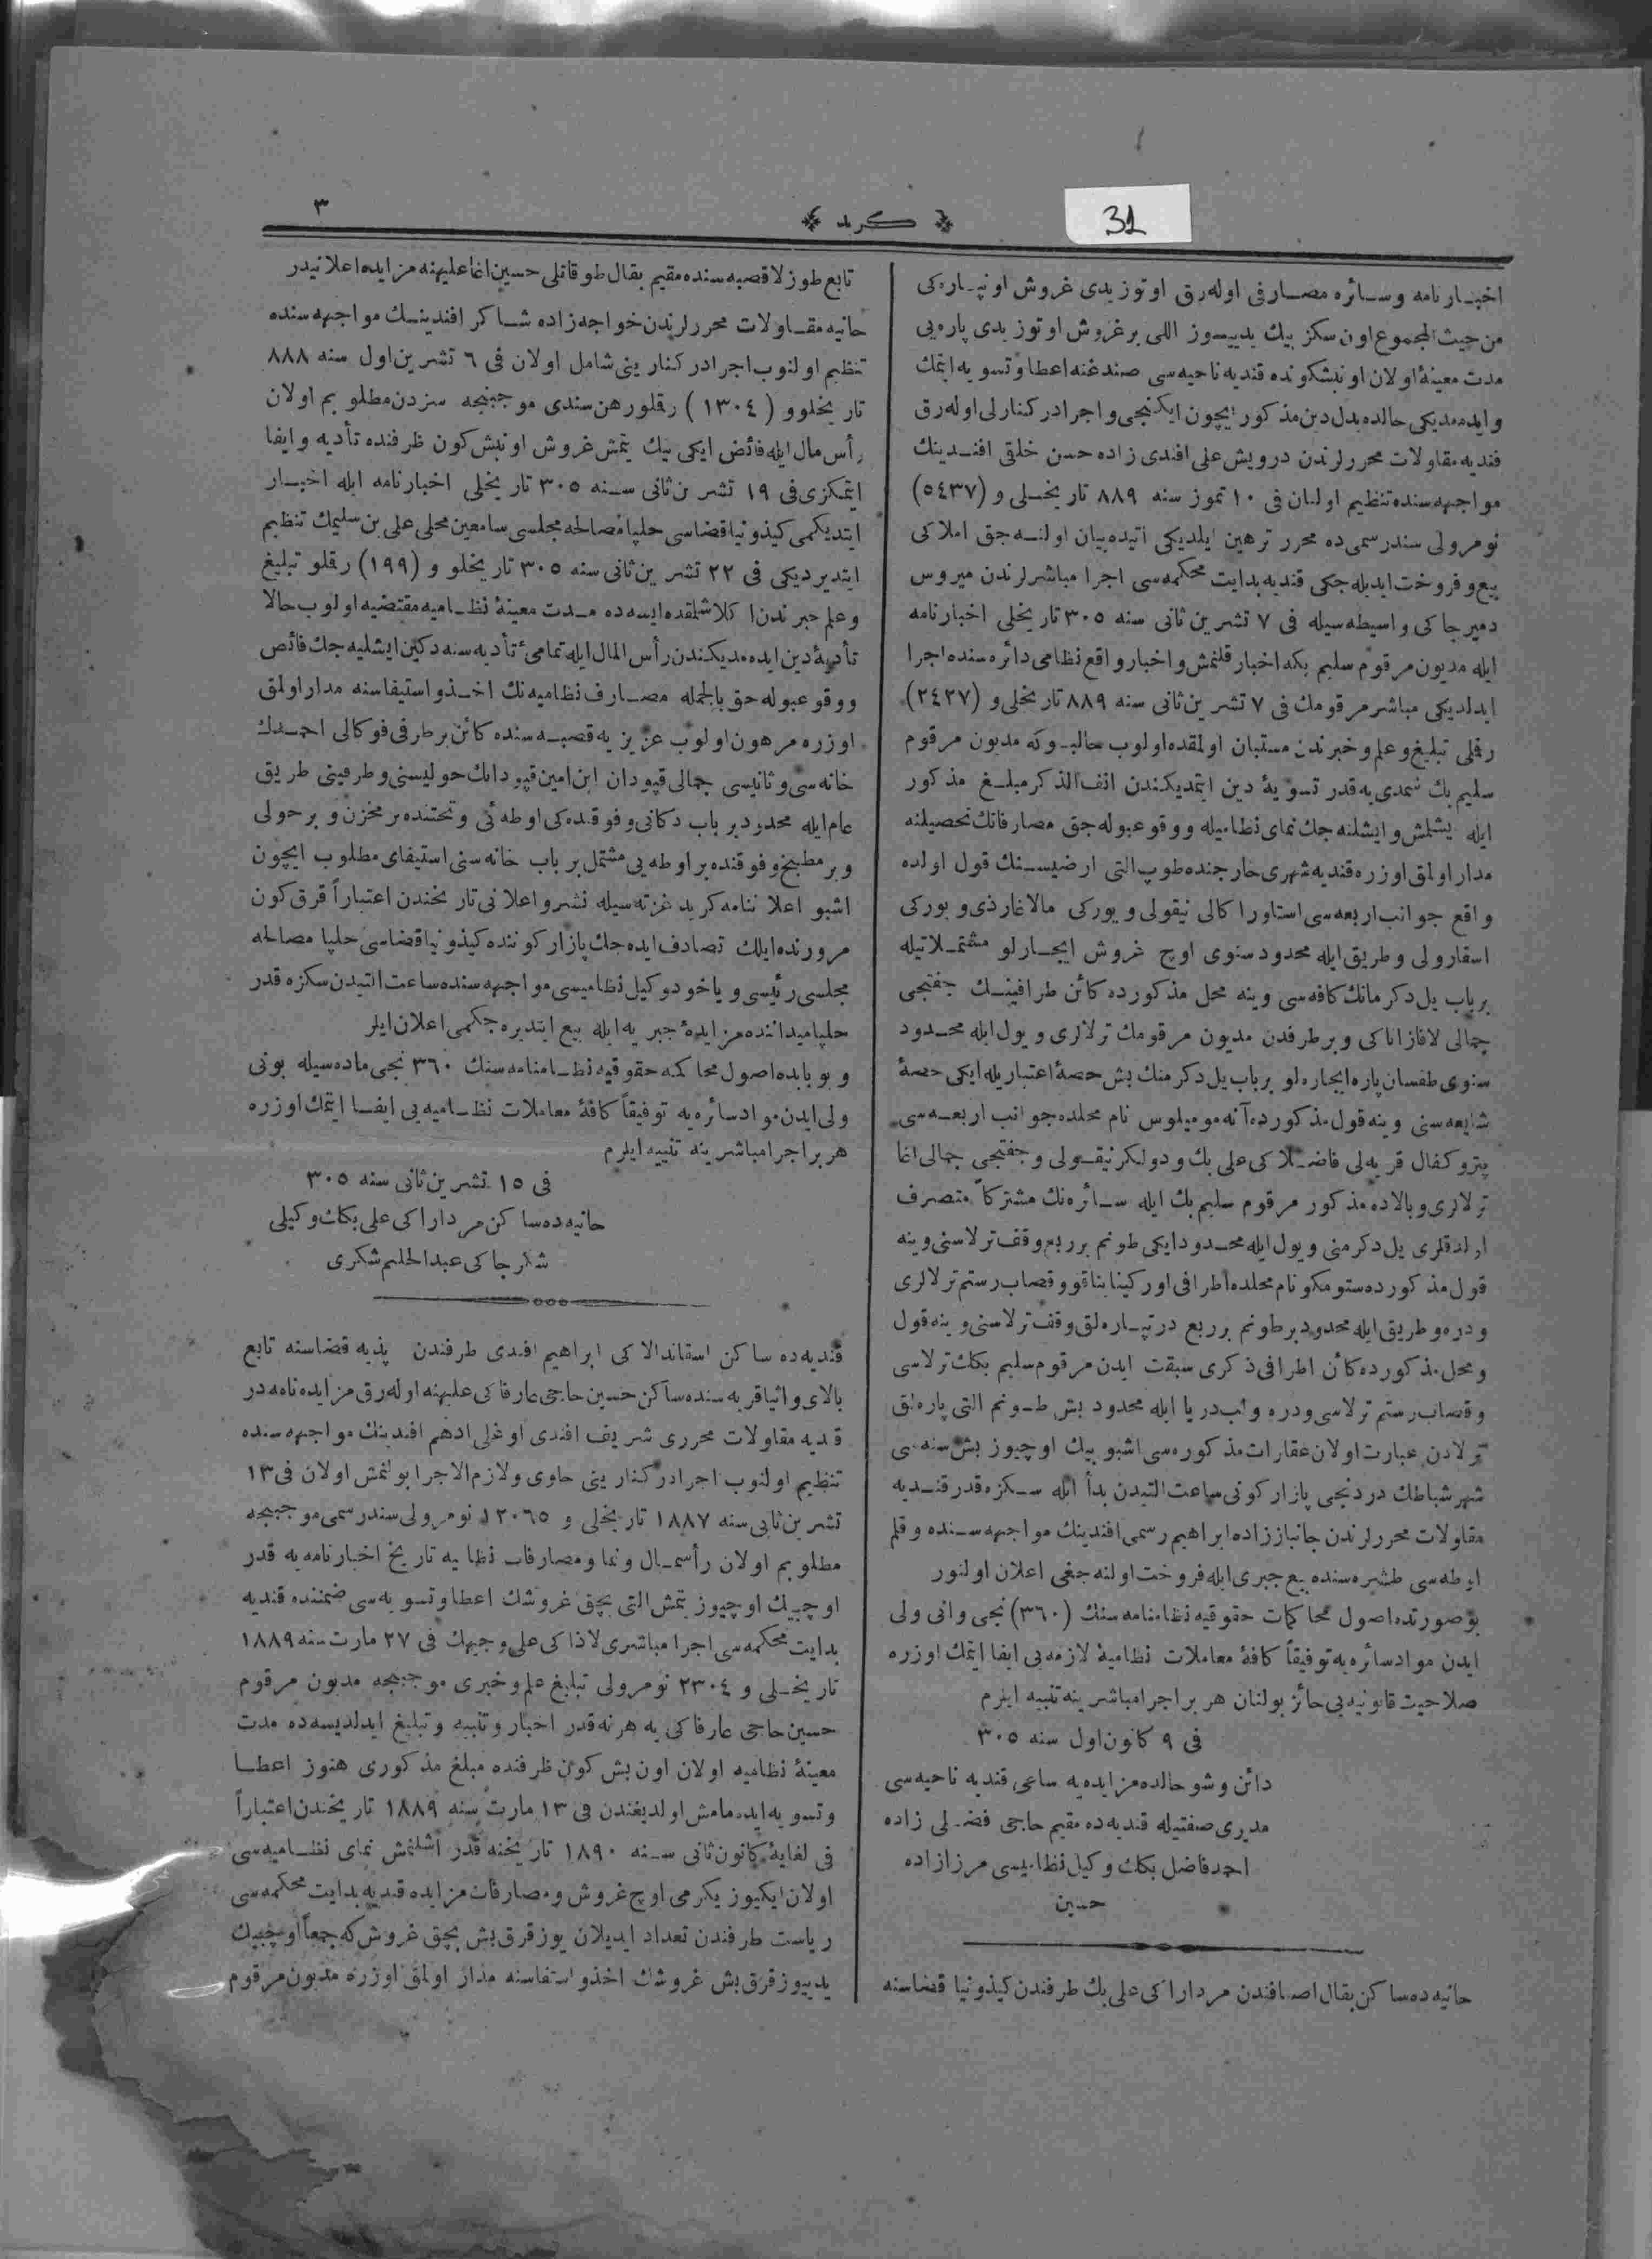 ٣
كريد
31
اخبارنامه وسائره مصارفى اوله‌رق اوتوز يدى غروش اون پاره‌كى
من حيث المجموع اون سكز بيك يديیوز اللى بر غروش اوتوز يدى پاره‌يى
مدت معينهٔ اولان اون بش كونده قنديه ناحيه‌سى صندغنه اعطا وتسويه ايتمك
وايده‌مديكى حالده بدل دين مذكور ايچون ايكنجى واجرا در كنارلى اوله‌رق
قنديه مقاولات محررلرندن درويش على افندى زاده حسن خلقى افندينك
مواجهه‌سنده تنظيم اولنان فى ١٠ تموز سنه ٨٨٩ تاريخلى و (٥٤٣٧)
نومرولى سند رسمى‌ده محرر ترهين ايلديكى اتيده بيان اولنه‌جق املاكى
بيع وفروخت ايديله‌جكى قنديه بدايت محكمه‌سى اجرا مباشرلرندن ميروس
دميرجاكى واسطه‌سيله فى ٧ تشرين ثانى سنه ٣٠٥ تاريخلى اخبارنامه
ايله مديون مرقوم سليم بكه اخبار قلنمش واخبار واقع نظامى دائره‌سنده اجرا
ايدلديكى مباشر مرقومك فى ٧ تشرين ثانى سنه ٨٨٩ تاريخلى و (٢٤٢٧)
رقملى تبليغ وعلم وخبرندن مستبان اولمقده اولوب حالبوكه مديون مرقوم
سليم بك شمدى‌يه قدر تسويهٔ دين ايتمديكندن انف الذكر مبلغ مذكور
ايله ايشلمش وايشلنه‌جك نماى نظاميله ووقوعبوله‌جق مصارفاتك تحصيلنه
مدار اولمق اوزره قنديه شهرى خارجنده طوپ التى ارضيسنك قول اولده
واقع جوانب اربعه‌سى استاوراكالى نيقولى ويوركى مالاغارذى ويوركى
اسقارولى وطريق ايله محدود سنوى اوچ غروش ايجارلو مشتملاتيله
بر باب يل دكرمانك كافه‌سى وينه محل مذكورده كائن طرافينك جفتجى
جمالى لاقازاناكى وبر طرفدن مديون مرقومك ترلالرى ويول ايله محدود
سنوى طقسان پاره ايجاره‌لو بر باب يل دكرمنك بش حصهٔ اعتباريله ايكى حصهٔ
شايعه‌سنى وينه قول مذكورده آنه‌موميلوس نام محلده جوانب اربعه‌سى
پتروكفال قريه‌لى فاضلاكى على بك ودولكر نيقولى وجفتجى جمالى اغا
ترلالرى وبالاده مذكور مرقوم سليم بك ايله سائره‌نك مشتركاً متصرف
اولدقلرى يل دكرمنى ويول ايله محدود ايكى طونم بر ربع وقف ترلاسنى وينه
قول مذكورده ستومكو نام محلده اطرافى اوركينا بناقو وقصاب رستم ترلالرى
ودره وطريق ايله محدود بر طونم بر ربع درت پاره‌لق وقف ترلاسنى وينه قول
ومحل مذكورده كائن اطرافى ذكرى سبقت ايدن مرقوم سليم بكك ترلاسى
وقصاب رستم ترلاسى ودره ولب دريا ايله محدود بش طونم التى پاره‌لق
ترلادن عبارت اولان عقارات مذكوره‌سى اشبو بيك اوچيوز بش سنه‌سى
شهر شباطك دردنجى پازار كونى ساعت التيدن بدأ ايله سكزه قدر قنديه
مقاولات محررلرندن جانباززاده ابراهيم رسمى افندينك مواجهه‌سنده وقلم
اوطه‌سى طشره‌سنده بيع جبرى ايله فروخت اولنه‌جغى اعلان اولنور
بو صورتده اصول محاكمات حقوقيه نظامنامه‌سنك (٣٦٠) نجى وانى ولى
ايدن مواد سائره‌يه توفيقاً كافهٔ معاملات نظاميهٔ لازمه‌يى ايفا ايتمك اوزره
صلاحيت قانونيه‌يى حائز بولنان هر بر اجرا مباشرينه تنبيه ايلرم
فى ٩ كانون اول سنه ٣٠٥
دائن وشو حالده مزايده‌يه ساعى قنديه ناحيه‌سى
مديرى صفتيله قنديه‌ده مقيم حاجى فضلى زاده
احمد فاضل بكك وكيل نظاميسى مرزازاده
حسين
حانيه‌ده ساكن بقال اصنافندن مرداراكى على بك طرفندن كيذونيا قضاسنه
تابع طوزلا قصبه‌سنده مقيم بقال طوقاتلى حسين اغا عليهنه مزايده اعلانيدر
حانيه مقاولات محررلرندن خواجه‌زاده شاكر افندينك مواجهه‌سنده
تنظيم اولنوب اجرا در كنارينى شامل اولان فى ٦ تشرين اول سنه ٨٨٨
تاريخلوو (١٣٠٤) رقملو رهن سندى موجبنجه سزدن مطلوبم اولان
رأس مال ايله فائض ايكى بيك يتمش غروش اون بش كون ظرفنده تأديه وايفا
ايتمكزى فى ١٩ تشرين ثانى سنه ٣٠٥ تاريخلى اخبارنامه ايله اخبار
ايتديكمى كيذونيا قضاسى حلپا مصالحه مجلسى سامعين محلى على بن سليمك تنظيم
ايتديرديكى فى ٢٢ تشرين ثانى سنه ٣٠٥ تاريخلو و (١٩٩) رقملو تبليغ
وعلم خبرندن اكلاشلمقده ايسه‌ده مدت معينهٔ نظاميه مقتضيه اولوب حالا
تأديهٔ دين ايده‌مديكندن رأس المال ايله تمامىٔ تأديه‌سنه دكين ايشليه‌جك فائض
ووقوعبوله‌جق بالجمله مصارف نظاميه‌نك اخذ واستيفاسنه مدار اولمق
اوزره مرهون اولوب عزيزيه قصبه‌سنده كائن بر طرفى فوكالى احمدك
خانه‌سى وثانيسى جمالى قپودان ابن امين قپودانك حوليسنى وطرفينى طريق
عام ايله محدود بر باب دكانى وفوقنده‌كى اوطه‌ئى وتحتنده بر مخزن وبر حولى
وبر مطبخ وفوقنده بر اوطه‌يى مشتمل بر باب خانه‌سنى استيفاى مطلوب ايچون
اشبو اعلاننامه كريد غزته‌سيله نشر واعلانى تاريخندن اعتباراً قرق كون
مرورنده ايلك تصادف ايده‌جك پازار كوننده كيذونيا قضاسى حلپا مصالحه
مجلسى رئيسى وياخود وكيل نظاميسى مواجهه‌سنده ساعت التيدن سكزه قدر
حلپا ميداننده مزايدهٔ جبريه ايله بيع ايتديره‌جكمى اعلان ايلر
وبو بابده اصول محاكمه حقوقيه نظامنامه‌سنك ٣٦٠ نجى ماده‌سيله بونى
ولى ايدن مواد سائره‌يه توفيقاً كافهٔ معاملات نظاميه‌يى ايفا ايتمك اوزره
هر بر اجرا مباشرينه تنبيه ايلرم
فى ١٥ تشرين ثانى سنه ٣٠٥
حانيه‌ده ساكن مرداراكى على بكك وكيلى
شكرجاكى عبدالحليم شكرى
قنديه‌ده ساكن اسقاندالاكى ابراهيم افندى طرفندن پذيه قضاسنه تابع
بالاى وانيا قريه‌سنده ساكن حسين حاجى عارفاكى عليهنه اوله‌رق مزايده نامه‌در
قنديه مقاولات محررى شريف افندى اوغلى ادهم افندينك مواجهه‌سنده
تنظيم اولنوب اجرا در كنارينى حاوى ولازم الاجرا بولنمش اولان فى ١٣
تشرين ثانى سنه ١٨٨٧ تاريخلى و ١٢٠٦٥ نومرولى سند رسمى موجبنجه
مطلوبم اولان رأسمال ونما ومصارفات نظاميه تاريخ اخبارنامه‌يه قدر
اوچ‌بيك اوچيوز يتمش التى بچق غروشك اعطا وتسويه‌سى ضمننده قنديه
بدايت محكمه‌سى اجرا مباشرى لاذاكى على وجيهك فى ٢٧ مارت سنه ١٨٨٩
تاريخلى و ٢٣٠٤ نومرولى تبليغ علم وخبرى موجبنجه مديون مرقوم
حسين حاجى عارفاكى يه هر نه‌قدر اخبار وتنبيه وتبليغ ايدلديسه‌ده مدت
معينهٔ نظاميه اولان اون بش كون ظرفنده مبلغ مذكورى هنوز اعطا
وتسويه ايده‌مامش اولديغندن فى ١٣ مارت سنه ١٨٨٩ تاريخندن اعتباراً
فى لغايهٔ كانون ثانى سنه ١٨٩٠ تاريخنه قدر اشلمش نماى نظاميه‌سى
اولان ايكيوز يكرمى اوچ غروش ومصارفات مزايده قنديه بدايت محكمه‌سى
رياست طرفندن تعداد ايديلان يوز قرق بش بچق غروش كه جمعاً اوچ‌بيك
يديیوز قرق بش غروشك اخذ واستيفاسنه مدار اولمق اوزره مديون مرقوم